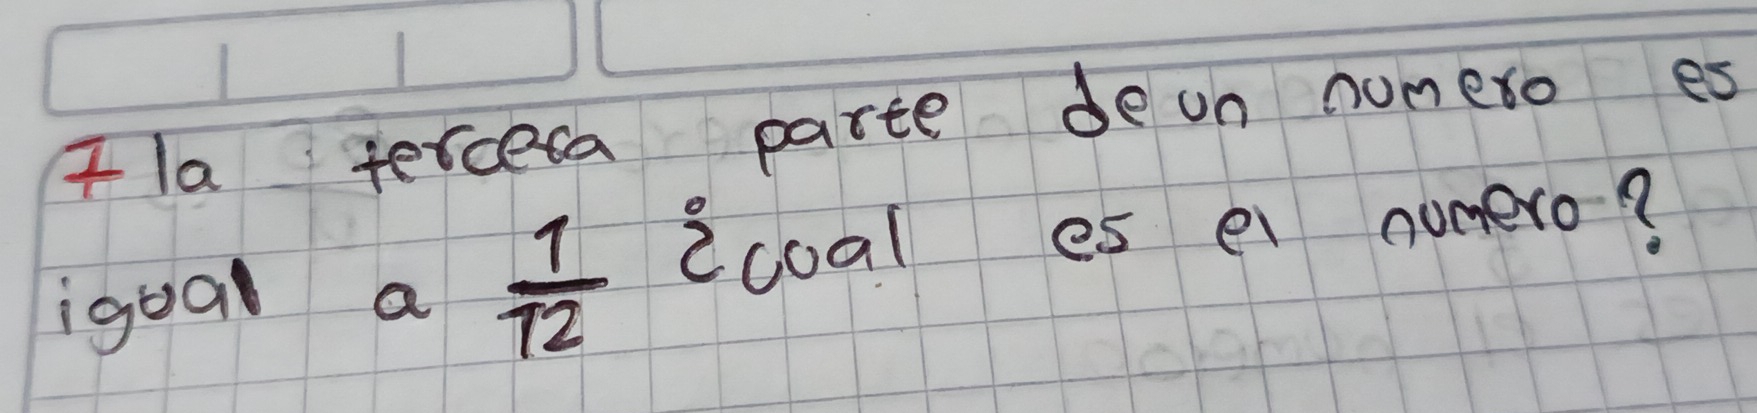 7 la tercera parte de un numero es
igual a 1/12 ¿cual es el numero?